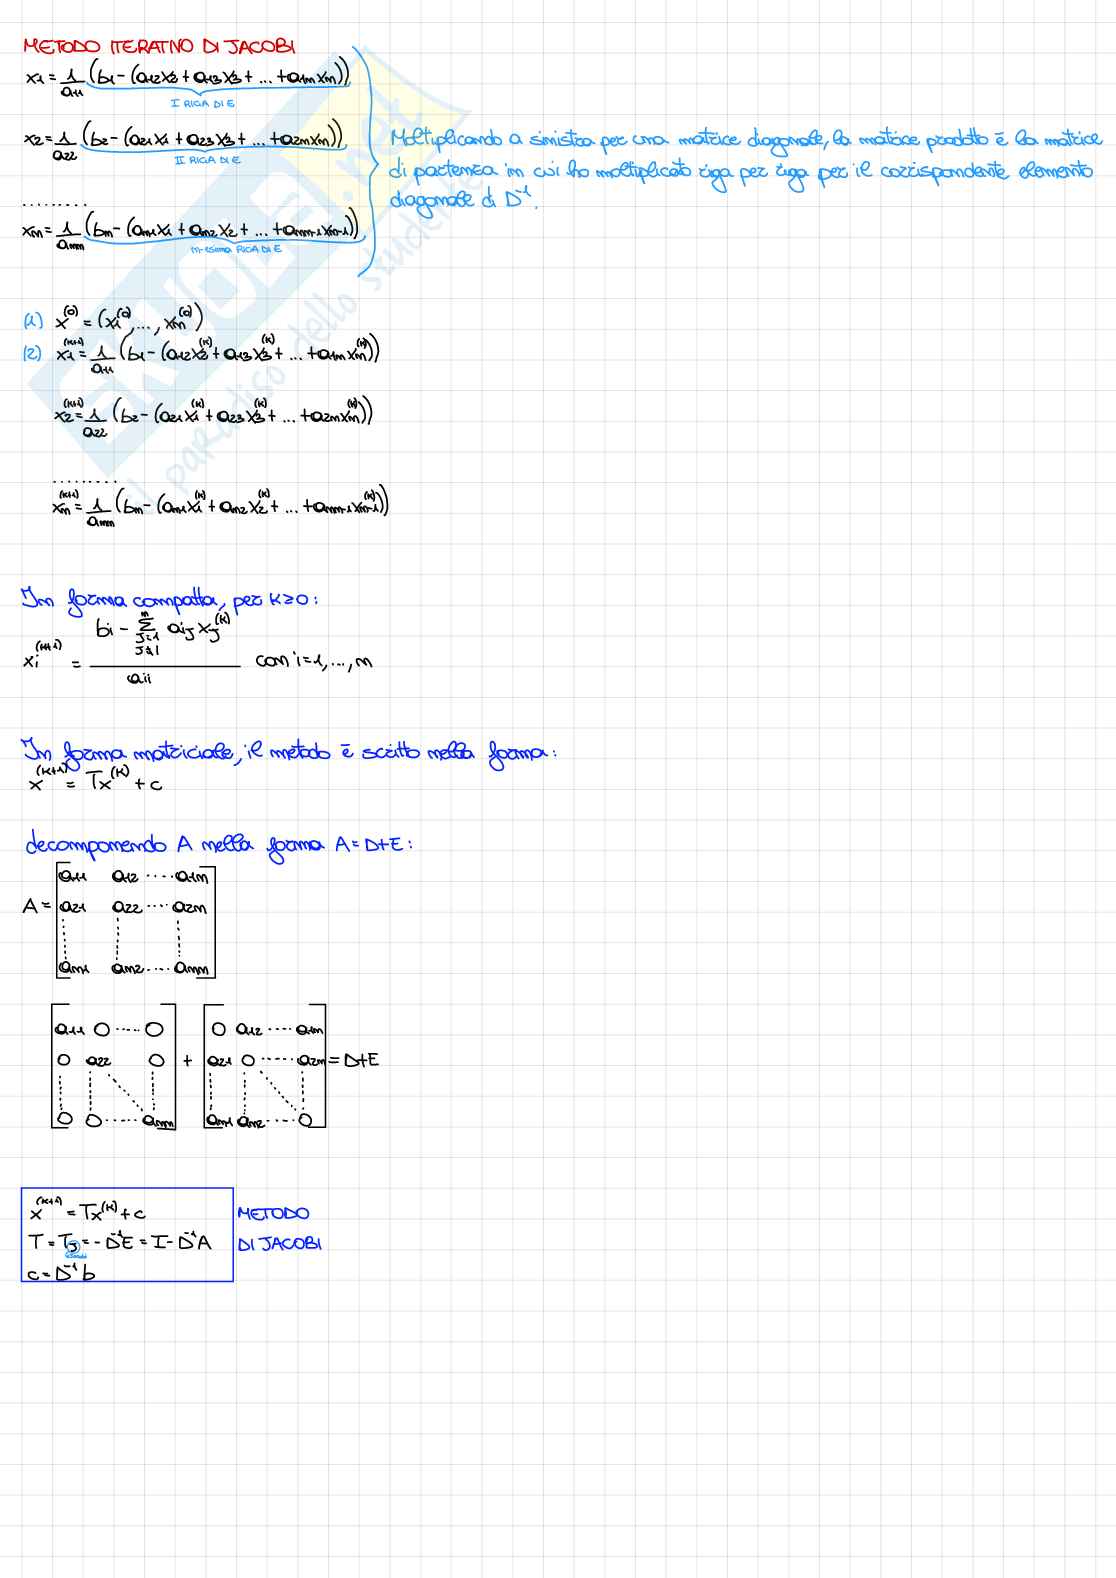 METODO ITERATIVO DI JACOBI
x1 = 1/a11 (b1 - (a12x2 + a13x3 + ... + a1nxn))
I RIGA DI E
x2 = 1/a22 (b2 - (a21x1 + a23x3 + ... + a2nxn))
II RIGA DI E
.........
xn = 1/ann (bn - (an1x1 + an2x2 + ... + ann-1xn-1))
n-esima RIGA DI E
Moltiplicando a sinistra per una matrice diagonale, la matrice prodotto è la matrice
di partenza in cui ho moltiplicato riga per riga per il corrispondente elemento
diagonale di D^-1.
(1) x^(0) = (x1^(0), ..., xn^(0))
(2) x1^(k+1) = 1/a11 (b1 - (a12x2^(k) + a13x3^(k) + ... + a1nxn^(k)))
x2^(k+1) = 1/a22 (b2 - (a21x1^(k) + a23x3^(k) + ... + a2nxn^(k)))
.........
xn^(k+1) = 1/ann (bn - (an1x1^(k) + an2x2^(k) + ... + ann-1xn-1^(k)))
In forma compatta, per k≥0:
bi - Σ aij xj^(k)
n
j=1
j≠1
xi^(k+1) = ——— con i=1,...,n
aii
In forma matriciale, il metodo è scritto nella forma:
x^(k+1) = Tx^(k) + c
decomponendo A nella forma A = D+E:
a11 a12 ···· a1n
A = a21 a22 ···· a2n
an1 an2 ···· ann
a11 0 ···· 0 0 a12 ···· a1n
0 a22 0 + a21 0 ······ a2n = D+E
0 0 ····· ann an1 an2 ····· 0
x^(k+1) = Tx^(k) + c METODO
T = TJ = -D^-1E = I - D^-1A DI JACOBI
c = D^-1 b
SKUOLA.net
il paradiso dello studente